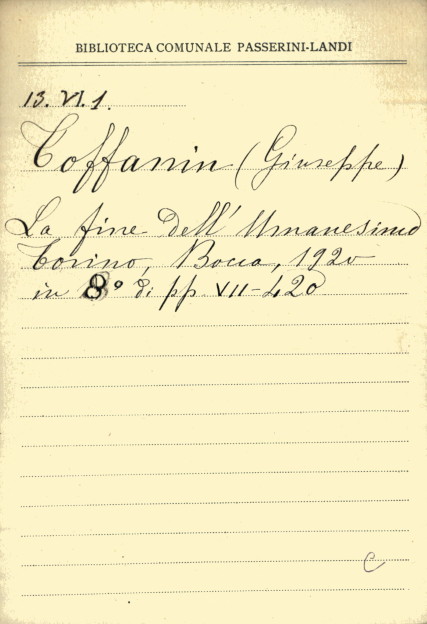 BIBLIOTECA COMUNALE PASSERINI-LANDI
13. VI. 1.
Toffanin (Giuseppe)
La fine dell' Umanesimo
Torino, Bocca, 1920
in 8° di pp. VII-420
C